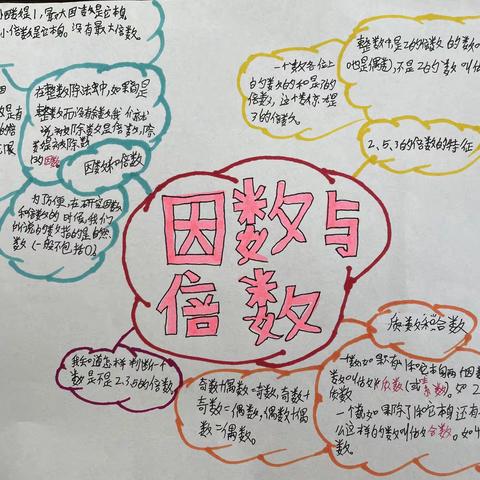 因数是1,最大因数是它本身
小倍数是它本身。没有最大倍数。
在整数除法中,如果商是
整数而没有余数,我们就
说被除数是除数的倍数,除
数是被除数
的因数。
因数和倍数
为了方便,在研究因数
和倍数的时候,我们
所说的数指的是自然
数(一般不包括0)。
一个数各位上
的数的和是3的
倍数,这个数就是
3的倍数。
整数中是2的倍数的数叫
(也是偶),不是2的数叫
2、5、3的倍数的特征
因数与
倍数
我知道怎样判断一个
数是不是2.3.5的倍数
奇数+偶数=奇数,奇数+
奇数=偶数,偶数+偶
数=偶数。
质数和合数
一个数如果只有1和它本身两个因数
数叫做质数(或素数)。如2
质数
一个数如果除了1和它本身还有
么这样的数叫做合数。如4
数。